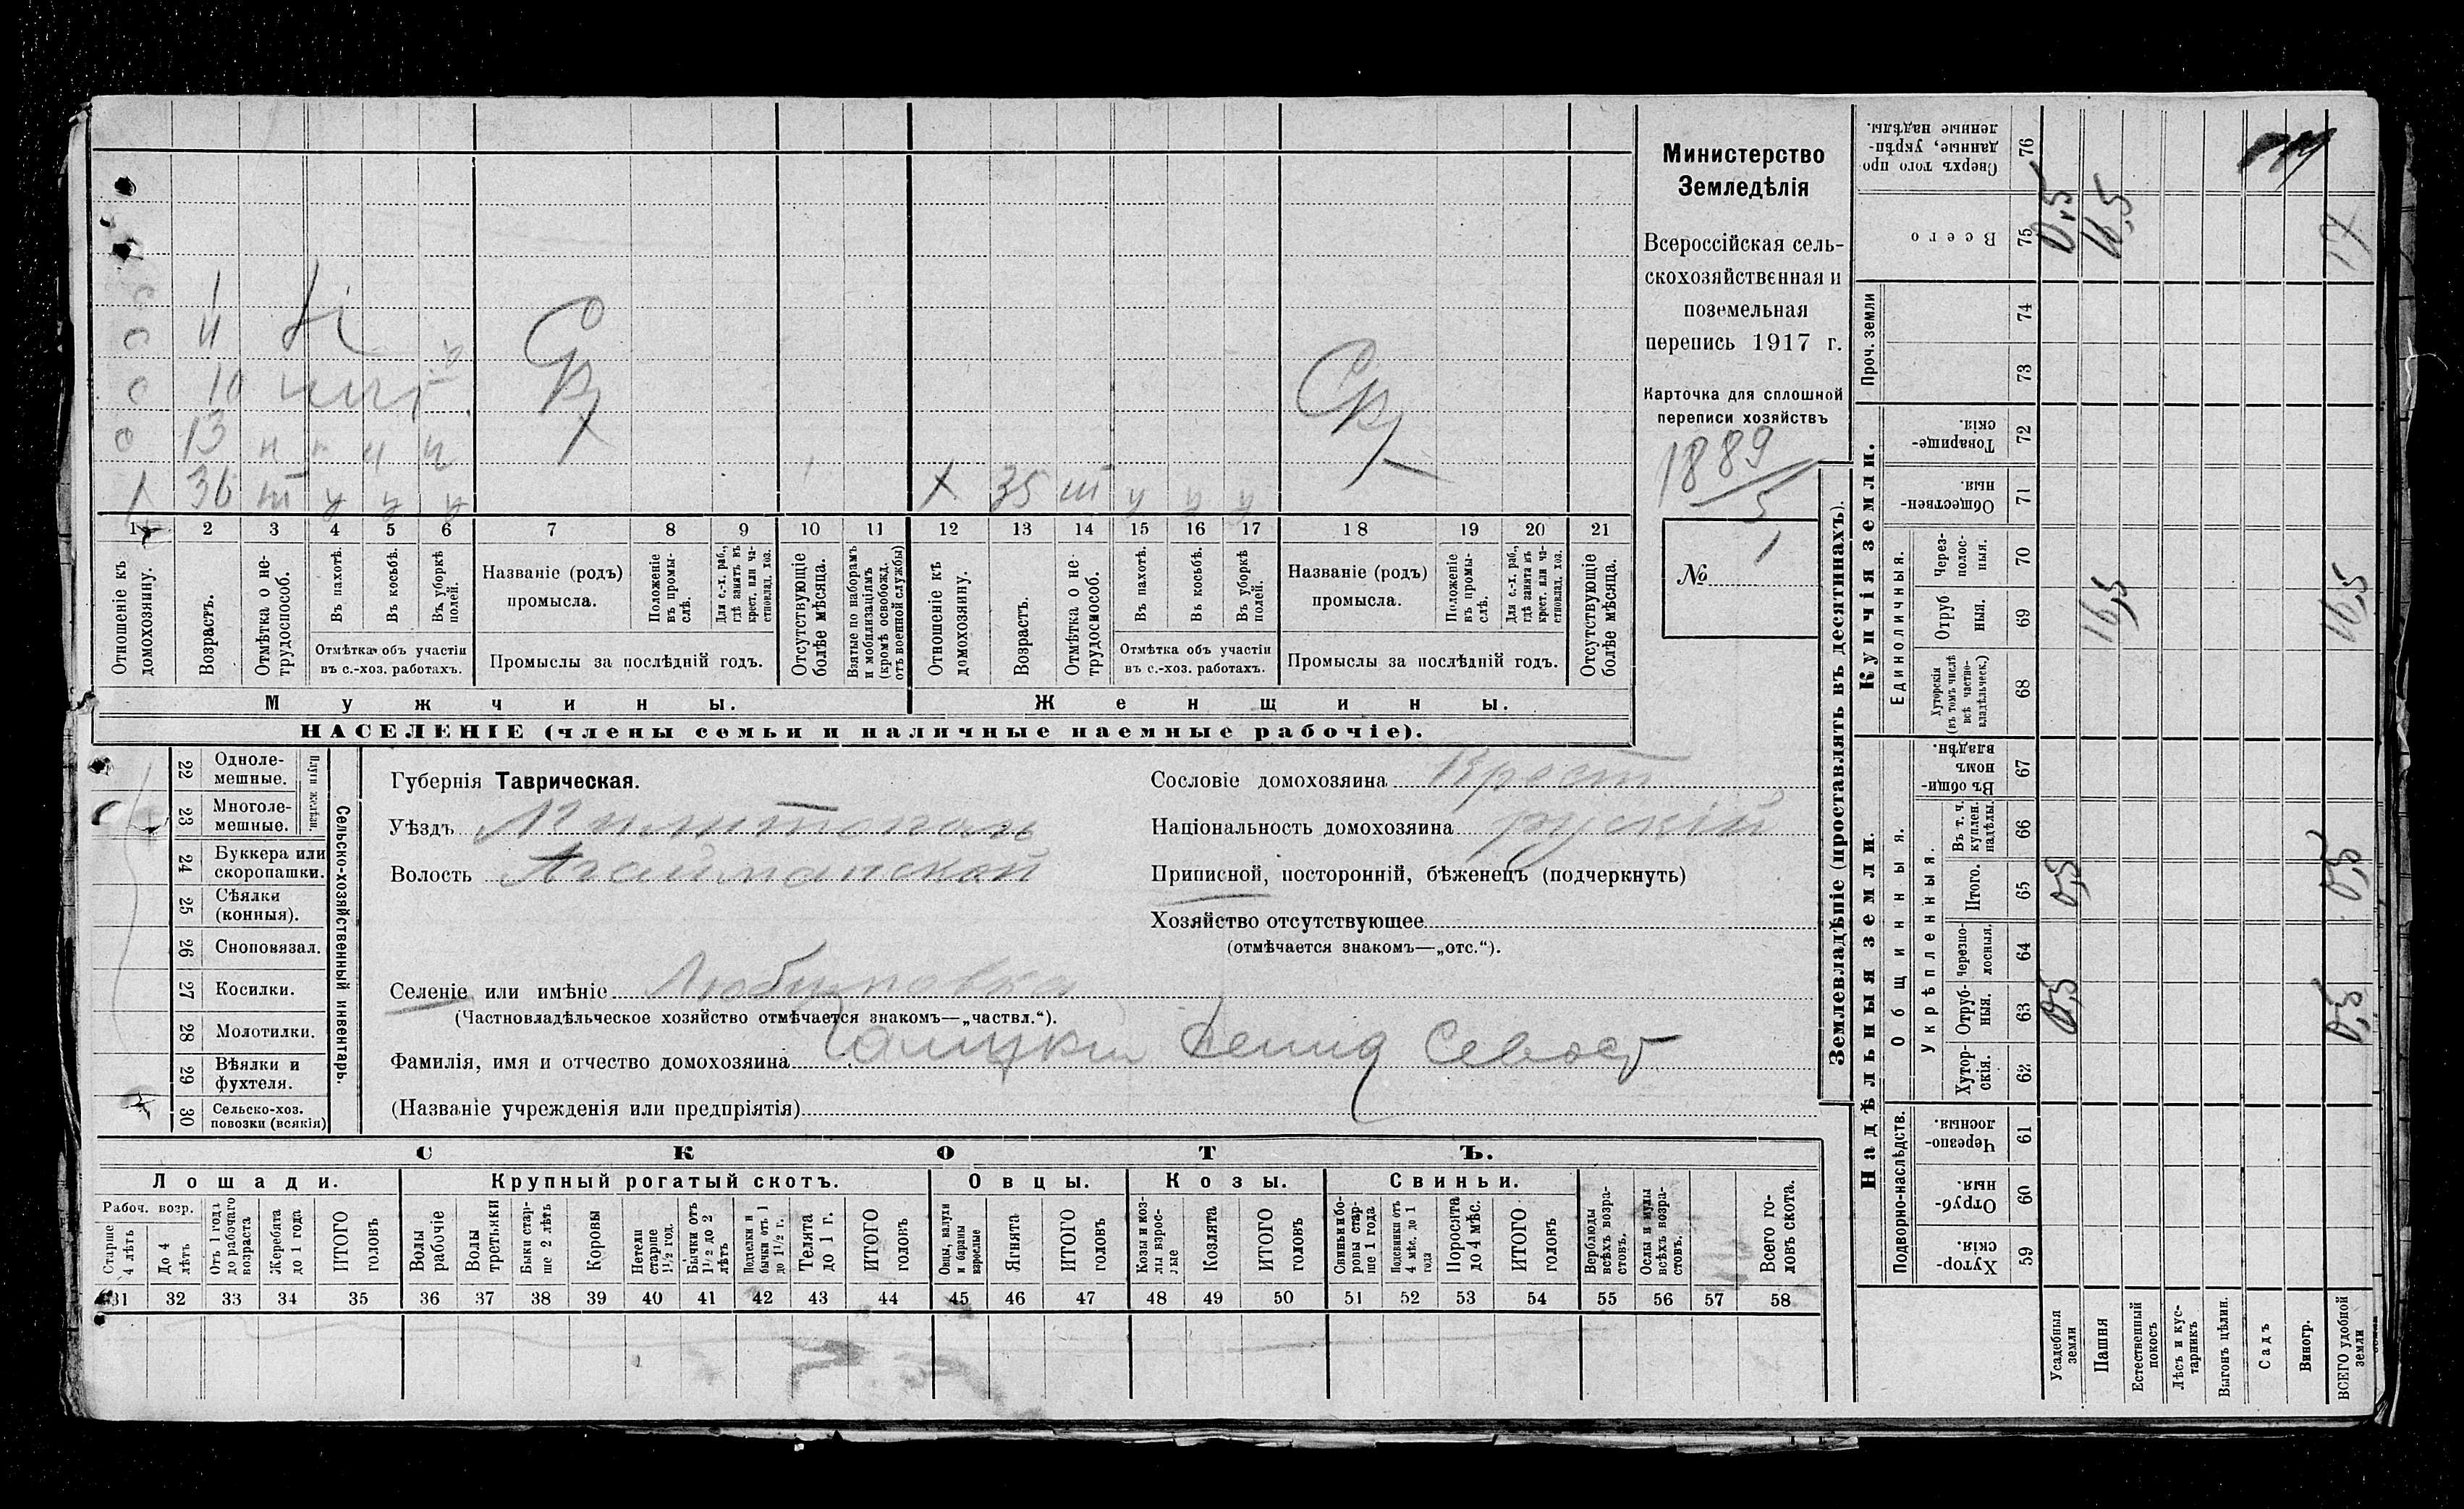 Министерство
Земледѣлія
Всероссійская сель-
скохозяйственная и
поземельная
перепись 1917 г.
Карточка для сплошной
переписи хозяйствъ
1889
5
№ 1
0 1
0 4
0 10
0 13 н н н н
1 36 ш у у у
Х 35 ш у у у
1 2 3 4 5 6 7 8 9 10 11 12 13 14 15 16 17 18 19 20 21
Отношеніе къ домохозяину.
Возрастъ.
Отмѣтка о не-трудоспособ.
Въ пахотѣ.
Въ косьбѣ.
Въ уборкѣ полей.
Отмѣтка объ участіи
въ с.-хоз. работахъ.
Названіе (родъ)
промысла.
Положеніе въ промы-слѣ.
Для с.-х. раб., гдѣ занятъ въ крест. или ча-стновлад. хоз.
Промыслы за послѣдній годъ.
Отсутствующіе болѣе мѣсяца.
Взятые по наборамъ и мобилизаціямъ (кромѣ освобожд. отъ военной службы)
Отношеніе къ домохозяину.
Возрастъ.
Отмѣтка о не-трудоспособ.
Въ пахотѣ.
Въ косьбѣ.
Въ уборкѣ полей.
Отмѣтка объ участіи
въ с.-хоз. работахъ.
Названіе (родъ)
промысла.
Положеніе въ промы-слѣ.
Для с.-х. раб., гдѣ занята въ крест. или ча-стновлад. хоз.
Промыслы за послѣдній годъ.
Отсутствующіе болѣе мѣсяца.
Мужчины. Женщины.
НАСЕЛЕНІЕ (члены семьи и наличные наемные рабочіе).
22 Одноле-мешные.
23 Многоле-мешные.
24 Буккера или скоропашки.
25 Сѣялки (конныя).
26 Сноповязал.
27 Косилки.
28 Молотилки.
29 Вѣялки и фухтеля.
30 Сельско-хоз. повозки (всякія)
Сельско-хозяйственный инвентарь.
Губернія Таврическая.
Уѣздъ Мелитополь
Волость Агайманской
Селеніе или имѣніе Любимовка
(Частновладѣльческое хозяйство отмѣчается знакомъ—„частвл.“).
Фамилія, имя и отчество домохозяина Галицкій Демид Севаст
(Названіе учрежденія или предпріятія)
Сословіе домохозяина Крест
Національность домохозяина рускій
Приписной, посторонній, бѣженецъ (подчеркнуть)
Хозяйство отсутствующее
(отмѣчается знакомъ—„отс.“).
СКОТЪ.
Лошади. Крупный рогатый скотъ. Овцы. Козы. Свиньи.
Рабоч. возр.
Старше 4 лѣтъ
До 4 лѣтъ
Отъ 1 года до рабочаго возраста
Жеребята до 1 года
ИТОГО головъ
Волы рабочіе
Волы третьяки
Быки стар-ше 2 лѣтъ
Коровы
Нетели старше 1½ год.
Бычки отъ 1½ до 2 лѣтъ
Подтелки и бычки отъ 1 до 1½ г.
Телята до 1 г.
ИТОГО головъ
Овцы, валухи и бараны взрослые
Ягнята
ИТОГО головъ
Козы и коз-лы взрос-лые
Козлята
ИТОГО головъ
Свиньи и бо-ровы стар-ше 1 года
Подсвинки отъ 4 мѣс. до 1 года
Поросята до 4 мѣс.
ИТОГО головъ
Верблюды всѣхъ возра-стовъ.
Ослы и мулы всѣхъ возра-стовъ.
Всего го-ловъ скота.
31 32 33 34 35 36 37 38 39 40 41 42 43 44 45 46 47 48 49 50 51 52 53 54 55 56 57 58
Землевладѣніе (проставлять въ десятинахъ).
Надѣльныя земли.
Купчія земли.
Проч. земли
Подворно-наслѣдств.
Общинныя.
Укрѣпленныя.
Единоличныя.
Сверхъ того про данные, укрѣп-ленные надѣлы. 76
Всего 75 0,5 16,5 17
74
73
Товарище-скія. 72
Обществен-ныя. 71
Через-полос-ныя. 70
Отруб ныя. 69 16,5 16,5
Хуторскія (въ томъ числѣ всѣ частно-владѣльческ.) 68
Въ общи-номъ владѣн. 67
Въ т. ч. куплен. надѣлы. 66
Итого. 65 0,5 0,5
Черезпо-лосныя. 64
Отруб-ныя. 63 0,5 0,5
Хутор-скія. 62
Черезпо-лосныя. 61
Отруб-ныя. 60
Хутор-скія. 59
Усадебныя земли
Пашня
Естественный покосъ
Лѣсъ и кус-тарникъ
Выгонъ цѣлин.
Садъ
Виногр.
ВСЕГО удобной земли